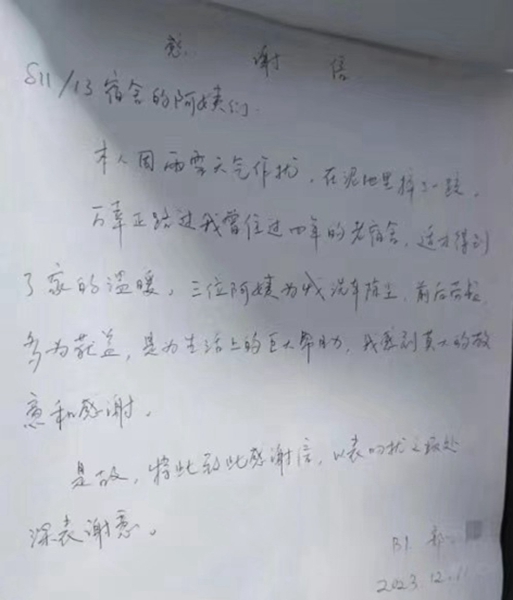 感 谢 信
S11/13 宿舍的阿姨们
本人因雨雪天气作扰，在泥地里摔了一跤，
万幸正路过我曾住过四年的老宿舍，这才得到
了家的温暖，三位阿姨为我洗车除尘，前后
多为，是为生活上的巨大帮助，我感到莫大的
意和感谢。
是故，特此致此感谢信，以表叨扰之
深表谢意。
B1
2023.12.11